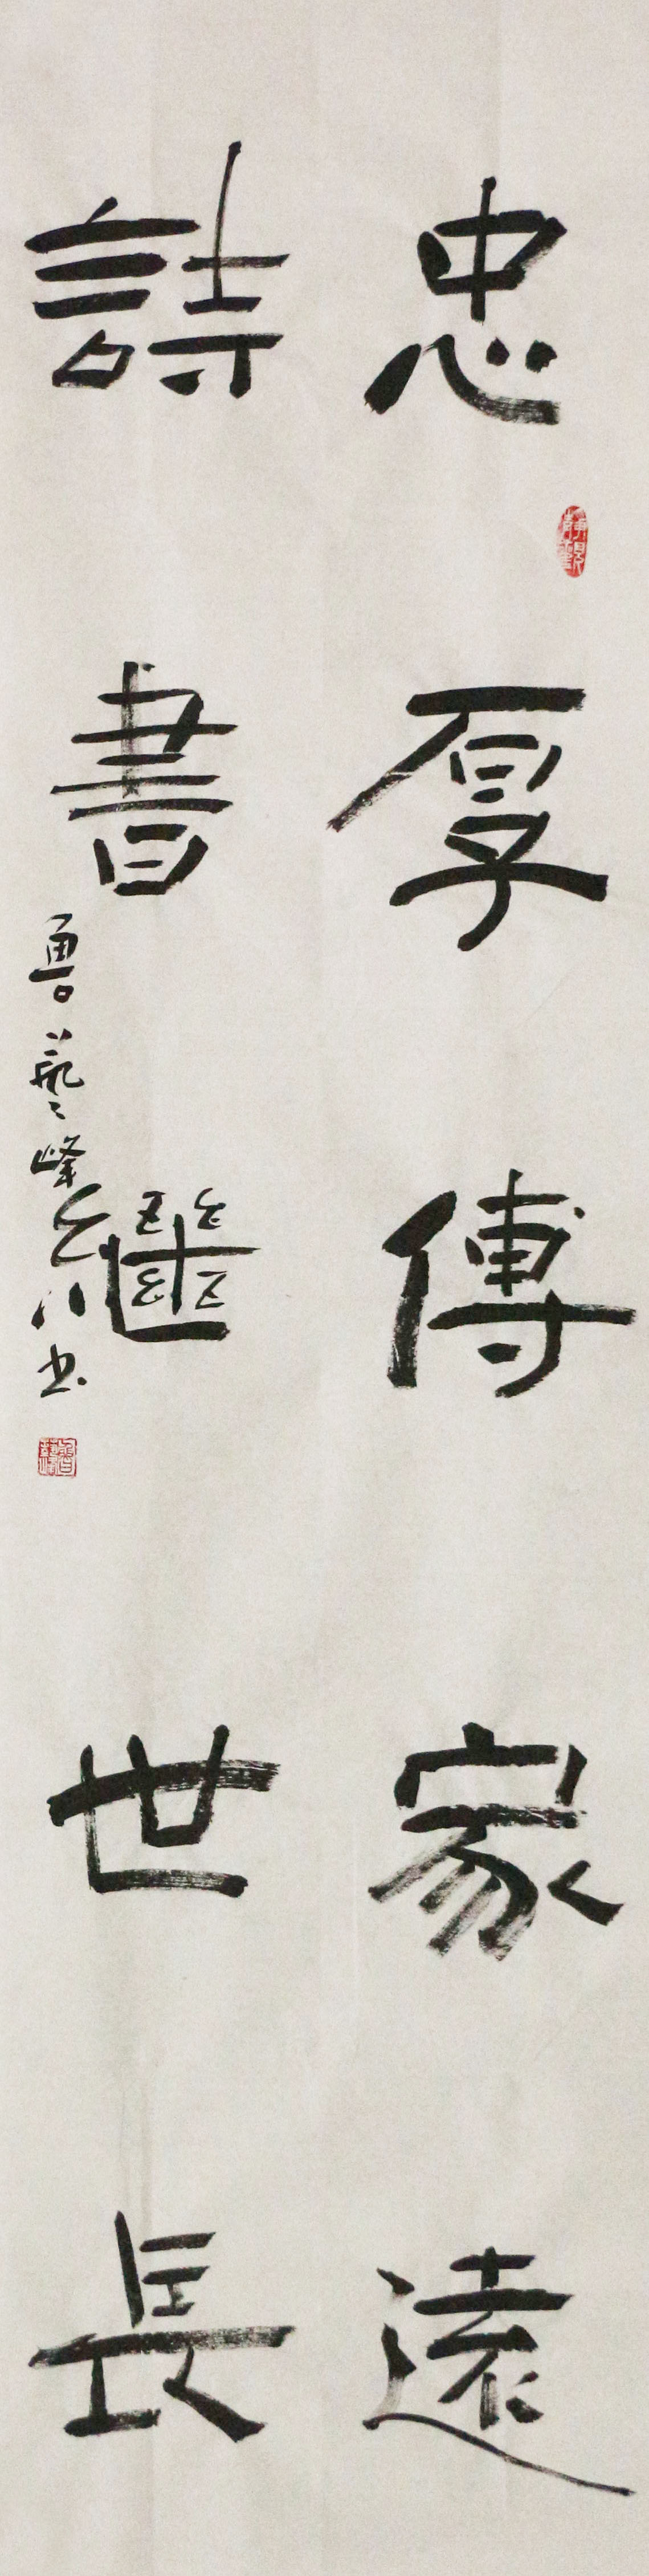 忠厚傳家遠
詩書繼世長
魯藝峰八十書